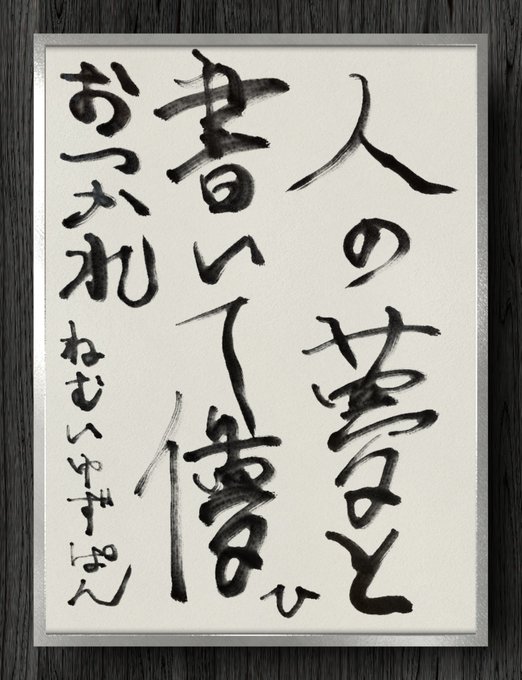 人の夢と
書いて儚ひ
おつかれ ねむいゆずぽん